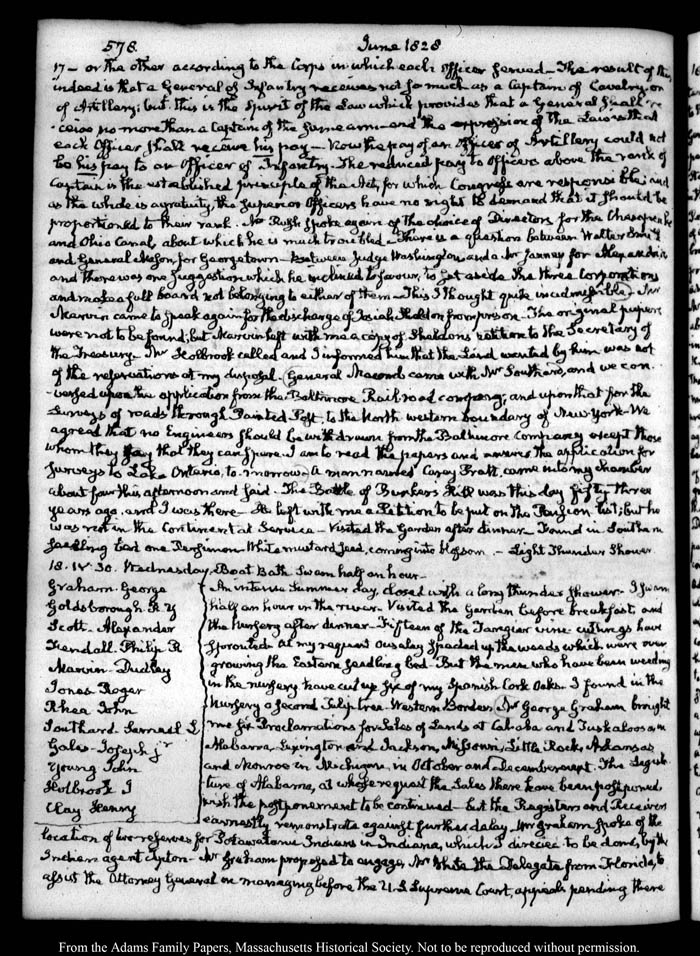 578.
June 1828
17 — or the other according to the Corps in which each Officer served — The result of this
indeed is that a General of Infantry receives not so much as a Captain of Cavalry or
of Artillery; but this is the spirit of the Law which provides that a General shall re-
-ceive no more than a Captain of the same arm — and the expression of the Law is that
each Officer shall receive his pay — Now the pay of an Officer of Artillery could not
be his pay to an Officer of Infantry. The reduced pay to Officers above the rank of
Captain is the established principle of the Act, for which Congress are responsible; and
as the whole is a gratuity, the superior Officers have no right to demand that it should be
proportioned to their rank. Mr Rush spoke again of the choice of Directors for the Chesapeake
and Ohio Canal, about which he is much troubled — There is a question between Walter Smith
and General Mason for Georgetown — between Judge Washington and a Mr Janney for Alexandria
and there was one suggestion which he inclined to favour, to set aside the three Corporations
and make a full board not belonging to either of them — This I thought quite inadmissible — Mr
Marvin came to speak again for the discharge of Josiah Sheldon from prison — The original papers
were not to be found; but Marvin left with me a copy of Sheldon's petition to the Secretary of
the Treasury. Mr Holbrook called and I informed him that the Land wanted by him was not
of the reservations at my disposal. General Macomb came with Mr Southard, and we con-
versed upon the application from the Baltimore Rail road company; and upon that for the
Surveys of roads through Painted Post, to the North western boundary of New York — We
agreed that no Engineers should be withdrawn from the Baltimore Company except those
whom they say that they can spare. I am to read the papers and answer the application for
surveys to Lake Ontario, to-morrow. A man named Carey Pratt came into my chamber
about four this afternoon and said. The Battle of Bunker's Hill was this day fifty three
years ago, and I was there — He left with me a Petition to be put on the Pension list; but he
was not in the Continental Service — Visited the Garden after dinner — Found in Southern
seedling bed one Persimon — White mustard seed, coming into blossom. — Light Thunder Shower
18. IV. 30. Wednesday. Boat Bath. Swam half an hour —
Graham. George
Goldsborough. R. Y
Scott. Alexander
Kendall. Philip R
Marvin. Dudley
Jones Roger
Rhea John
Southard. Samuel L.
Gales. Joseph jr
Young John
Holbrook J
Clay Henry
An intense Summer day, closed with a long thunder shower. I swam
half an hour in the river. Visited the Garden before breakfast, and
the Nursery after dinner — Fifteen of the Tangier vine cuttings have
sprouted. At my request Ousley spaded up the weeds which were over
growing the Eastern seedling bed — But the men who have been weeding
in the nursery have cut up six of my Spanish Cork Oaks. I found in the
Nursery a second Tulip tree. Western Border. Mr George Graham brought
me six Proclamations for Sales of Lands at Cahaba and Tuskaloosa in
Alabama, Lexington and Jackson, Missouri, Little Rock, Arkansas
and Monroe in Michigan, in October and December next. The Legisla-
ture of Alabama, at whose request the Sales there have been postponed
wish the postponement to be continued — but the Registers and Receivers
earnestly remonstrate against further delay. Mr Graham spoke of the
location of two reserves for Potawatamie Indians in Indiana, which I directed to be done, by the
Indian agent Tipton — Mr Graham proposed to engage, Mr White the Delegate from Florida, to
assist the Attorney General in managing before the U.S Supreme Court, appeals pending there
From the Adams Family Papers, Massachusetts Historical Society. Not to be reproduced without permission.